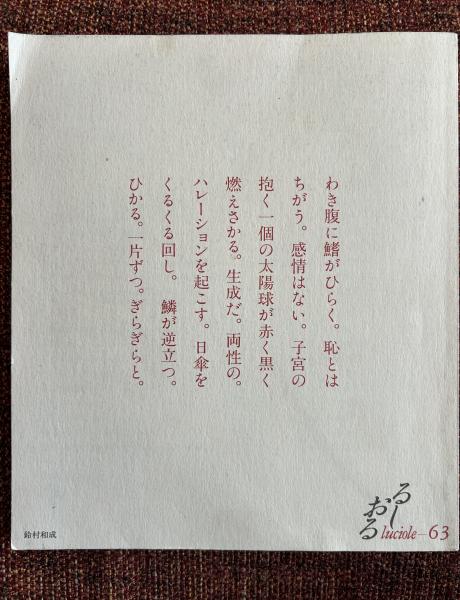 わき腹に鰭がひらく。恥とは
ちがう。感情はない。子宮の
抱く一個の太陽球が赤く黒く
燃えさかる。生成だ。両性の。
ハレーションを起こす。日傘を
くるくる回し。鱗が逆立つ。
ひかる。一片ずつ。ぎらぎらと。
るしおる
luciole—63
鈴村和成